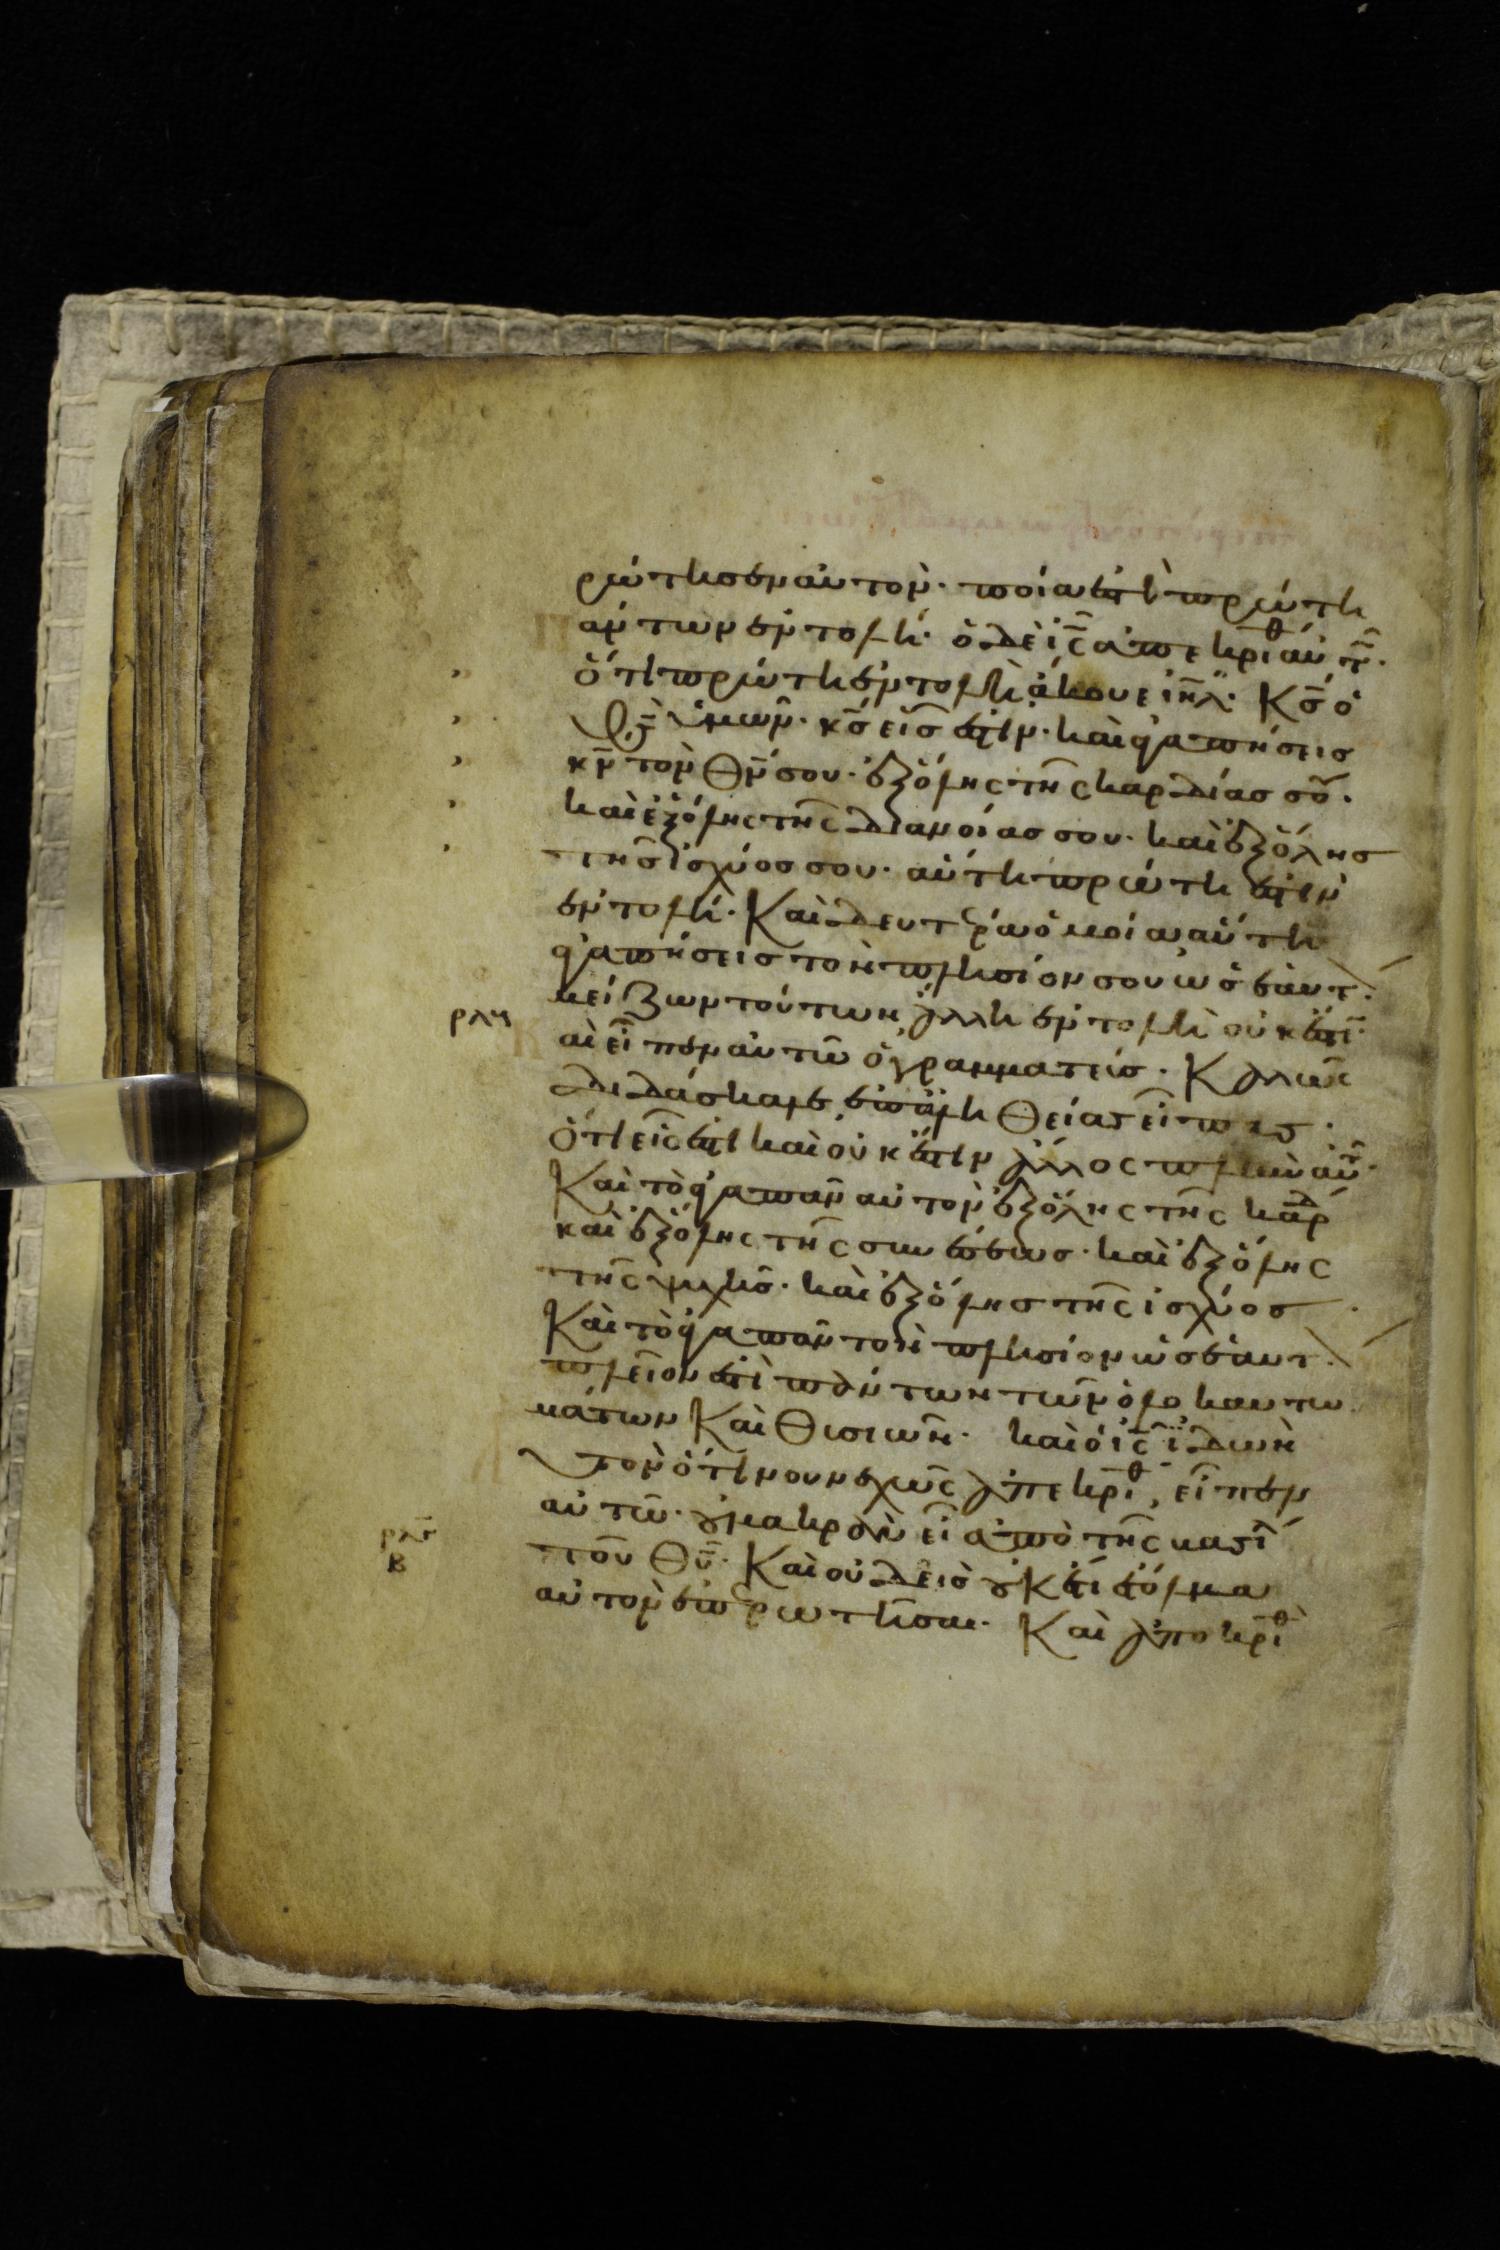 ρώτησεν αὐτόν· ποία ἐστὶ πρώτη
πάντων ἐντολή· ὁ δὲ ἰ̅ς̅ ἀπεκρίθ αὐτ·
ὅτι πρώτη ἐντολὴ ἄκουε ἰη̅λ· Κ̅ς̅ ὁ
θ̅ς̅ ἡμῶν· κ̅ς̅ εἷς ἐστιν· καὶ ἀγαπήσεις
κ̅ν̅ τὸν Θ̅ν̅ σου· ἐξ ὅλης τῆς καρδίας σου·
καὶ ἐξ ὅλης τῆς διανοίας σου· καὶ ἐξ ὅλης
τῆς ἰσχύος σου· αὕτη πρώτη ἐστὶν
ἐντολή· Καὶ δευτέρα ὁμοία αὕτη
ἀγαπήσεις τὸν πλησίον σου ὡς ἑαυτ·
μείζων τούτων ἄλλη ἐντολὴ οὐκ ἔστι·
ρλη Καὶ εἶπεν αὐτῶ ὁ γραμματεύς· Καλῶς
διδάσκαλε, ἐπ' ἀληθείας εἶπας·
ὅτι εἷς ἐστι καὶ οὐκ ἔστιν ἄλλος πλὴν αὐτ·
Καὶ τὸ ἀγαπᾶν αὐτὸν ἐξ ὅλης τῆς καρδ
καὶ ἐξ ὅλης τῆς συνέσεως· καὶ ἐξ ὅλης
τῆς ψυχῆς· καὶ ἐξ ὅλης τῆς ἰσχύος
Καὶ τὸ ἀγαπᾶν τὸν πλησίον ὡς ἑαυτ·
πλεῖον ἐστὶ πάντων τῶν ὁλοκαυτω
μάτων Καὶ Θυσιῶν· καὶ ὁ ἰ̅ς̅ ἰδὼν
αὐτὸν ὅτι νουνεχῶς ἀπεκρίθ, εἶπεν
αὐτῶ· οὐ μακρὰν εἶ ἀπὸ τῆς βασι
ρλθ β τοῦ Θ̅υ̅· Καὶ οὐδεὶς οὐκέτι ἐτόλμα
αὐτὸν ἐπερωτῆσαι· Καὶ ἀποκριθ